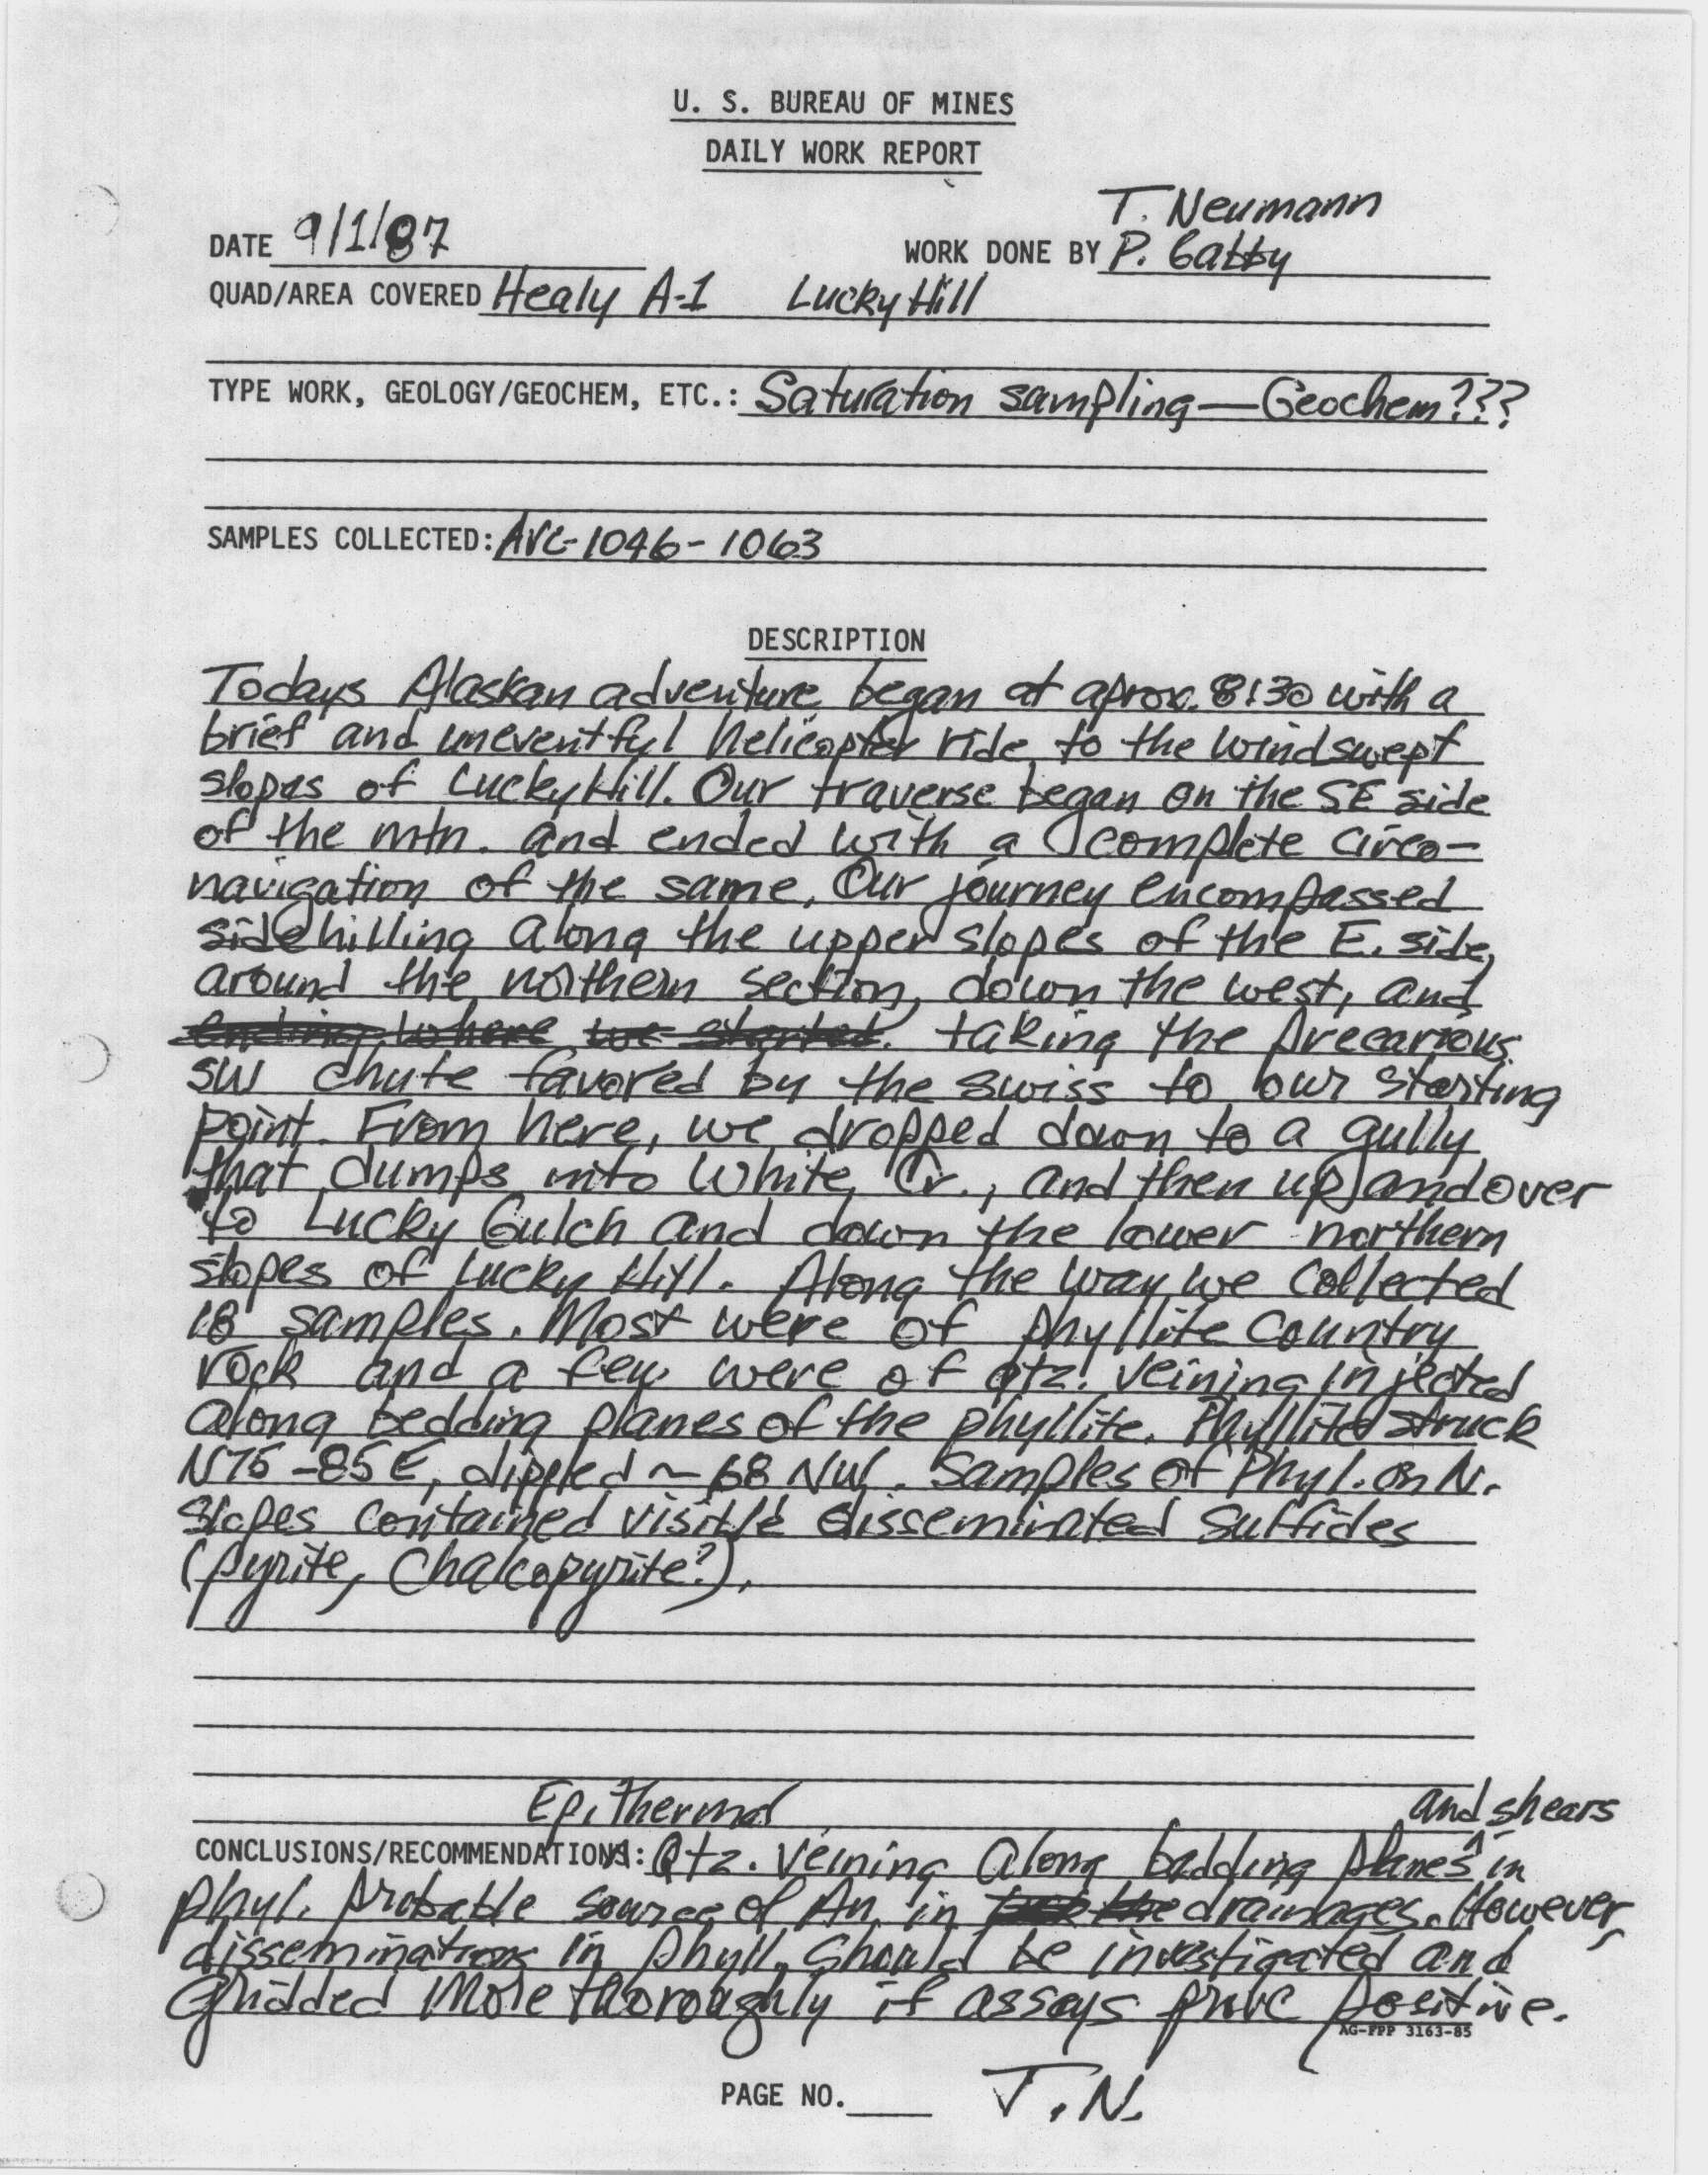 U. S. BUREAU OF MINES
DAILY WORK REPORT
T. Neumann
DATE 9/1/87 WORK DONE BY P. Gabby
QUAD/AREA COVERED Healy A-1 Lucky Hill
TYPE WORK, GEOLOGY/GEOCHEM, ETC.: Saturation sampling—Geochem???
SAMPLES COLLECTED: AVC-1046-1063
DESCRIPTION
Todays Alaskan adventure began at aprox. 8:30 with a
brief and uneventful helicopter ride to the windswept
slopes of Lucky Hill. Our traverse began on the SE side
of the mtn. and ended with a complete circo-
navigation of the same. Our journey encompassed
sidehilling along the upper slopes of the E. side,
around the northern section, down the west, and
ending where we started. taking the precarious
SW chute favored by the Swiss to our starting
point. From here, we dropped down to a gully
that dumps into White Cr., and then up and over
to Lucky Gulch and down the lower northern
slopes of Lucky Hill. Along the way we collected
18 samples. Most were of phyllite Country
rock and a few were of qtz. veining injected
along bedding planes of the phyllite. Phyllite struck
N75-85E, dipped ~ 68 NW. Samples of Phyl. on N.
Slopes contained visible disseminated Sulfides
(pyrite, Chalcopyrite?).
Epithermal and shears
CONCLUSIONS/RECOMMENDATIONS: Qtz. veining along bedding planes ^ in
phyl. probable source of Au in drainages. However,
disseminations in phyll. should be investigated and
gridded more thoroughly if assays prove positive.
AG-FPP 3163-85
PAGE NO. T.N.